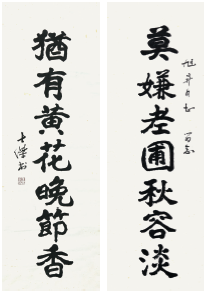 莫嫌老圃秋容淡
猶有黃花晚節香